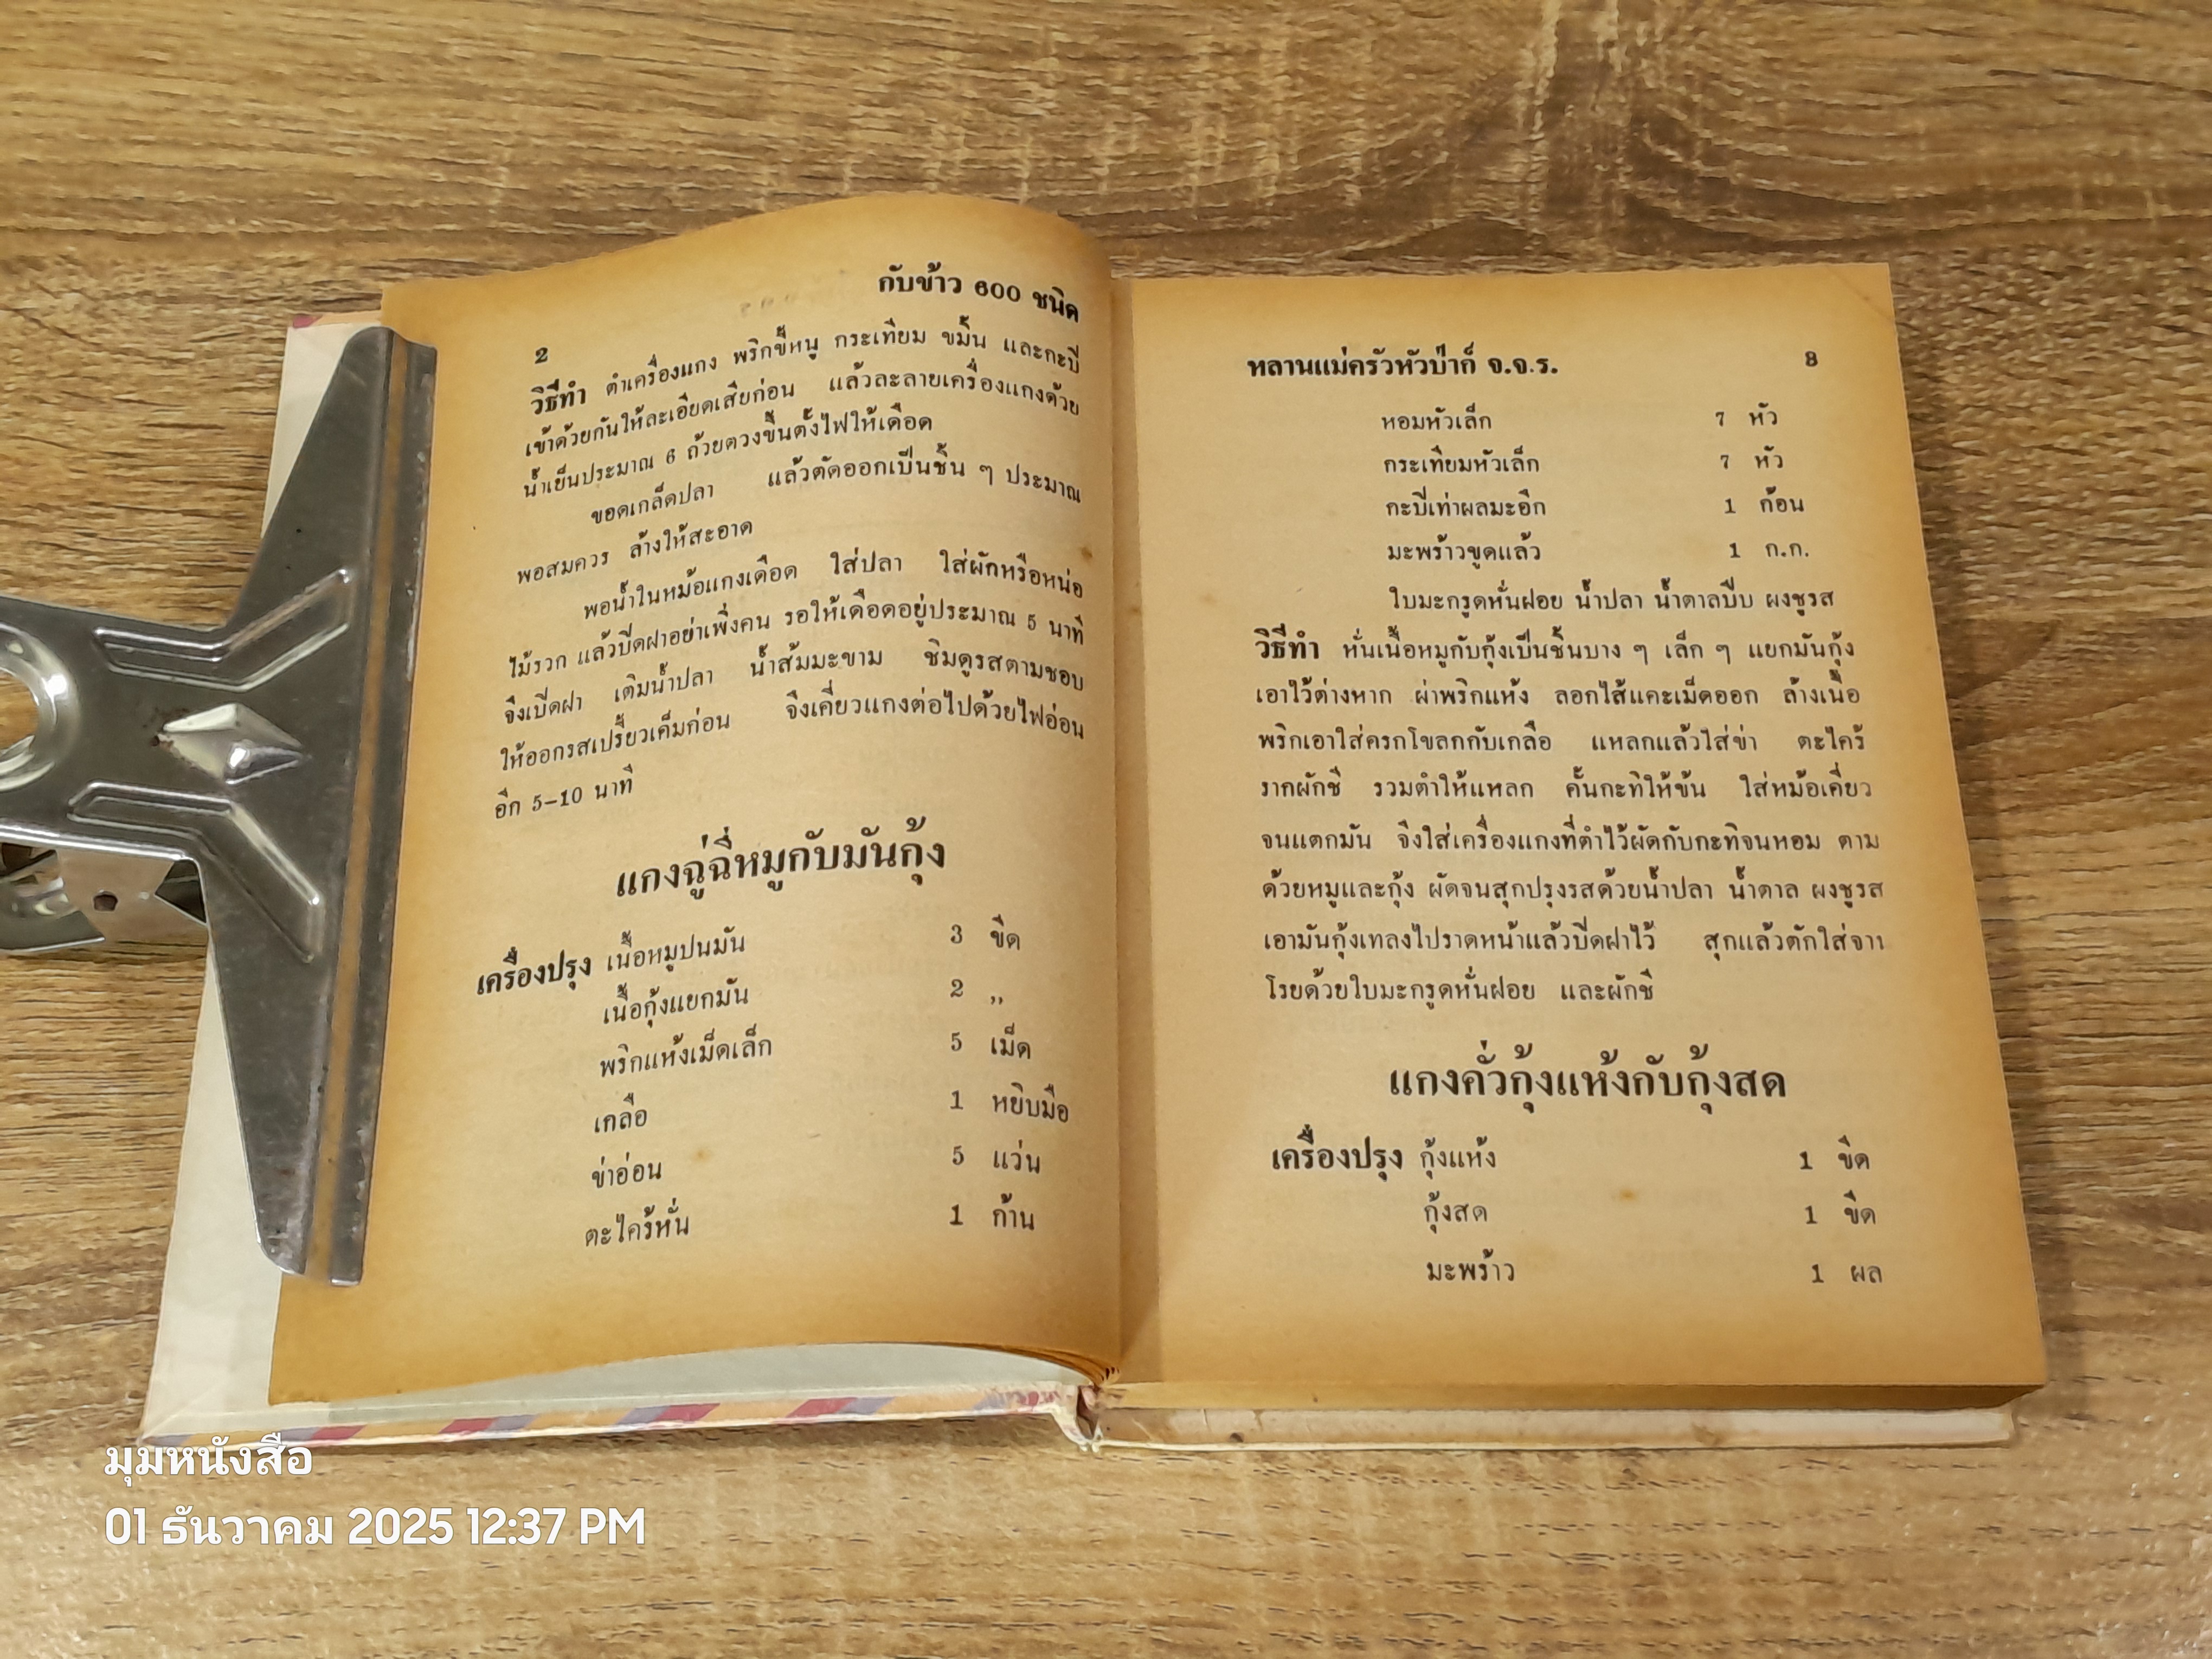 กับข้าว 600 ชนิด
2
วิธีทำ ตำเครื่องแกง พริกขี้หนู กระเทียม ขมิ้น และกะปี
เข้าด้วยกันให้ละเอียดเสียก่อน แล้วละลายเครื่องแกงด้วย
น้ำเย็นประมาณ 6 ถ้วยตวงขึ้นตั้งไฟให้เดือด
ขอดเกล็ดปลา แล้วตัดออกเป็นชิ้น ๆ ประมาณ
พอสมควร ล้างให้สะอาด
พอน้ำในหม้อแกงเดือด ใส่ปลา ใส่ผักหรือหน่อ
ไม้รวก แล้วปิดฝาอย่าเพิ่งคน รอให้เดือดอยู่ประมาณ 5 นาที
จึงเปิดฝา เติมน้ำปลา น้ำส้มมะขาม ชิมดูรสตามชอบ
ให้ออกรสเปรี้ยวเค็มก่อน จึงเคี่ยวแกงต่อไปด้วยไฟอ่อน
อีก 5-10 นาที
แกงฉู่ฉี่หมูกับมันกุ้ง
เครื่องปรุง เนื้อหมูปนมัน 3 ขีด
เนื้อกุ้งแยกมัน 2 ,,
พริกแห้งเม็ดเล็ก 5 เม็ด
เกลือ 1 หยิบมือ
ข่าอ่อน 5 แว่น
ตะไคร้หั่น 1 ก้าน
หลานแม่ครัวหัวป่าก์ จ.จ.ร. 3
หอมหัวเล็ก 7 หัว
กระเทียมหัวเล็ก 7 หัว
กะปิเท่าผลมะอึก 1 ก้อน
มะพร้าวขูดแล้ว 1 ก.ก.
ใบมะกรูดหั่นฝอย น้ำปลา น้ำตาลปีบ ผงชูรส
วิธีทำ หั่นเนื้อหมูกับกุ้งเป็นชิ้นบาง ๆ เล็ก ๆ แยกมันกุ้ง
เอาไว้ต่างหาก ผ่าพริกแห้ง ลอกไส้แคะเม็ดออก ล้างเนื้อ
พริกเอาใส่ครกโขลกกับเกลือ แหลกแล้วใส่ข่า ตะไคร้
รากผักชี รวมตำให้แหลก คั้นกะทิให้ข้น ใส่หม้อเคี่ยว
จนแตกมัน จึงใส่เครื่องแกงที่ตำไว้ผัดกับกะทิจนหอม ตาม
ด้วยหมูและกุ้ง ผัดจนสุกปรุงรสด้วยน้ำปลา น้ำตาล ผงชูรส
เอามันกุ้งเทลงไปราดหน้าแล้วปิดฝาไว้ สุกแล้วตักใส่จาน
โรยด้วยใบมะกรูดหั่นฝอย และผักชี
แกงคั่วกุ้งแห้งกับกุ้งสด
เครื่องปรุง กุ้งแห้ง 1 ขีด
กุ้งสด 1 ขีด
มะพร้าว 1 ผล
มุมหนังสือ
01 ธันวาคม 2025 12:37 PM